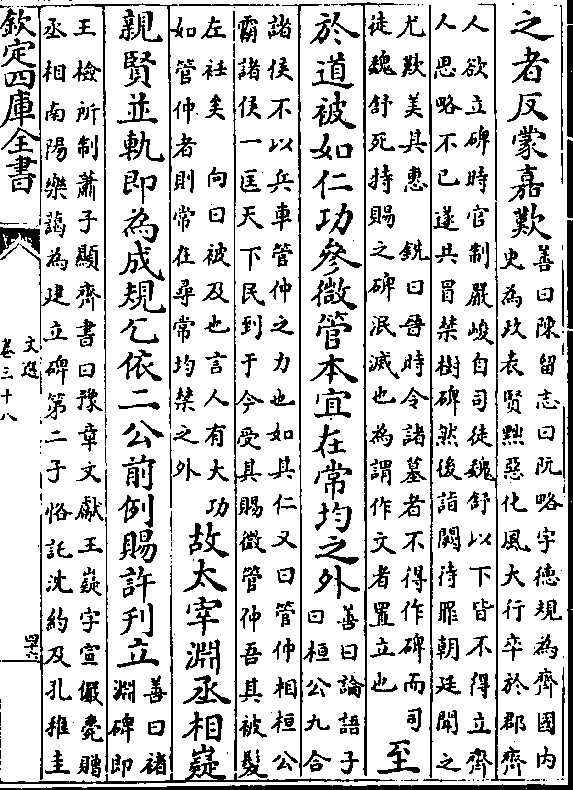 之者反蒙嘉歎
善曰陳留志曰阮略字德規為齊國内
史為政表賢黜惡化風大行卒於郡齊
人欲立碑時官制嚴峻自司徒魏舒以下皆不得立齊
人思略不已遂共冒禁樹碑然後詣闕待罪朝廷聞之
尤歎美其惠　銑曰晉時令諸墓者不得作碑而司
徒魏舒死持賜之碑泯滅也為謂作文者置立也
至
於道被如仁功參微管本宜在常均之外
善曰論語子
曰桓公九合
諸侯不以兵車管仲之力也如其仁又曰管仲相桓公
霸諸侯一匡天下民到于今受其賜微管仲吾其被髮
左衽矣　向曰被及也言人有大功
如管仲者則常在尋常均禁之外
故太宰淵丞相嶷
親賢並軌即為成規乞依二公前例賜許刋立
善曰禇
淵碑即
王檢所制蕭子顯齊書曰豫章文獻王嶷字宣儼薨贈
丞相南陽樂藹為建立碑第二子恪託沈約及孔稚圭
欽定四庫全書
文選
卷三十八
四十六